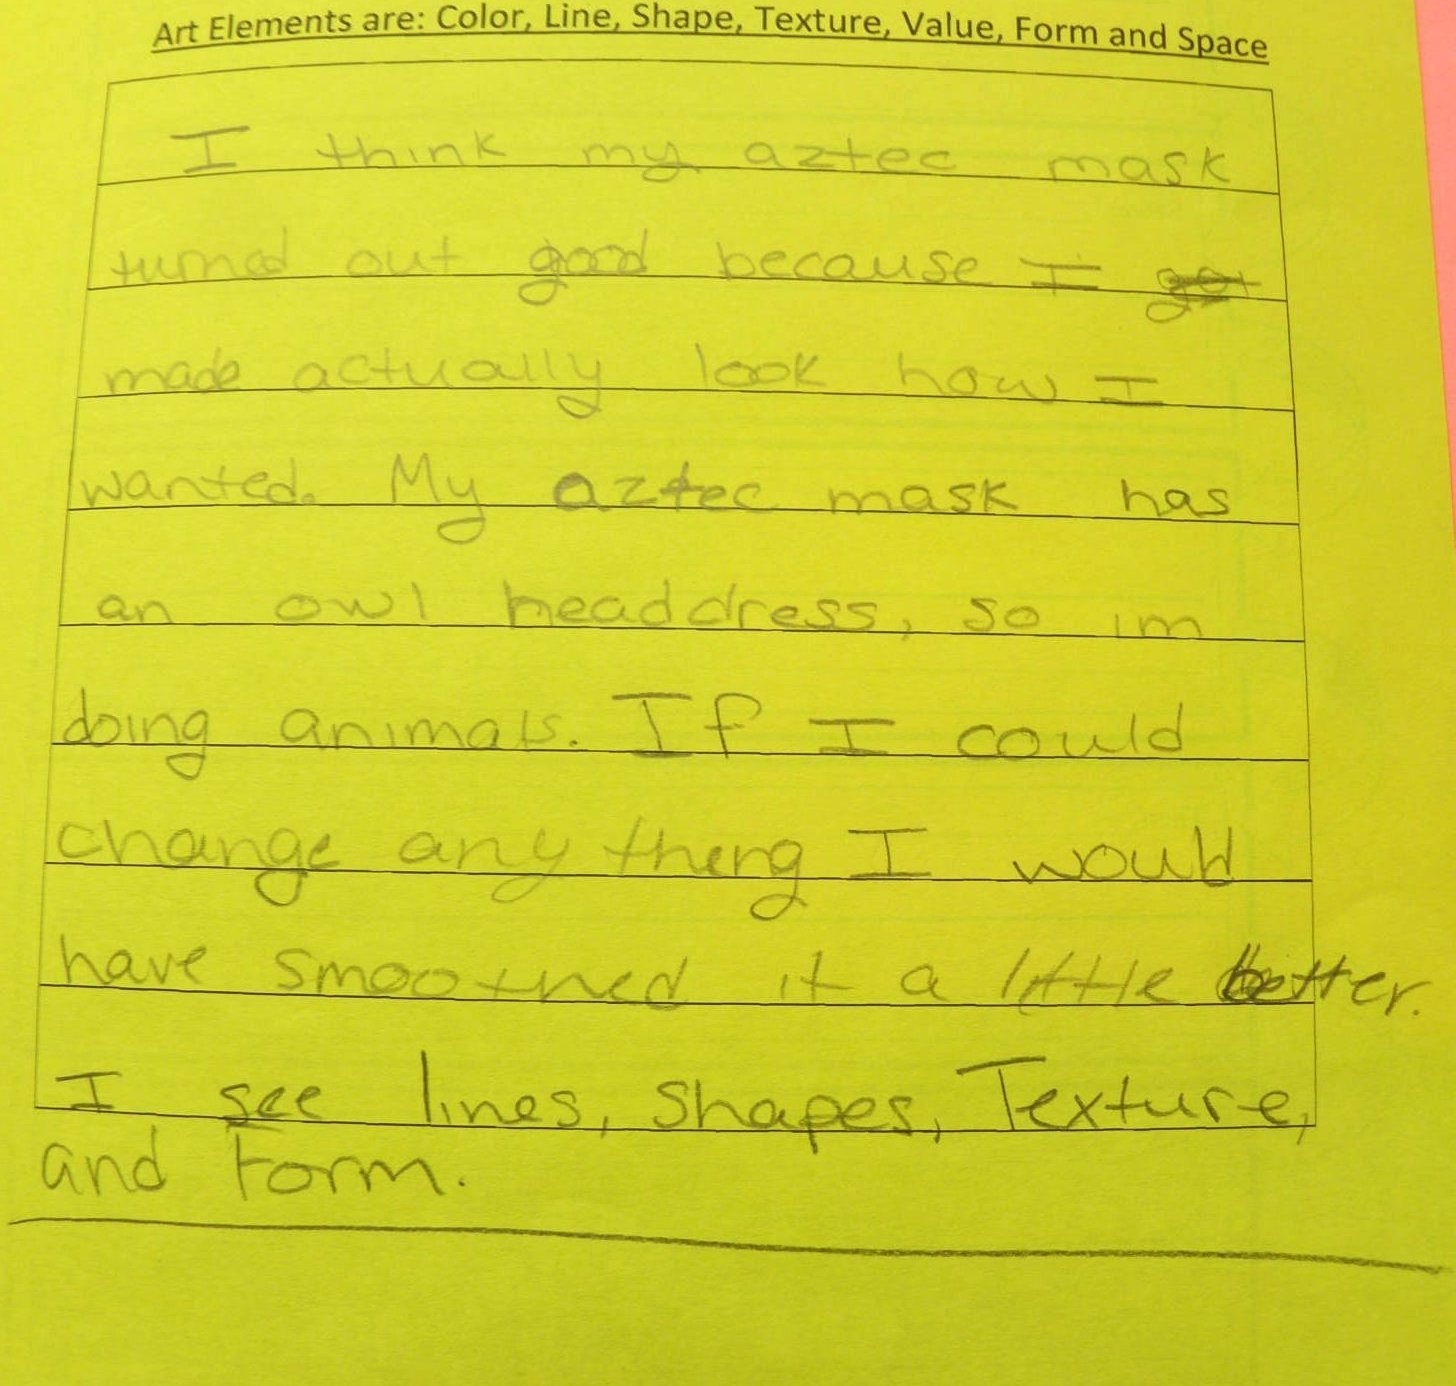 Art Elements are: Color, Line, Shape, Texture, Value, Form and Space
I think my aztec mask
turned out good because I got
made actually look how I
wanted. My aztec mask has
an owl headdress, so im
doing animals. If I could
change any thing I would
have smoothed it a little better.
I see lines, shapes, Texture,
and Form.